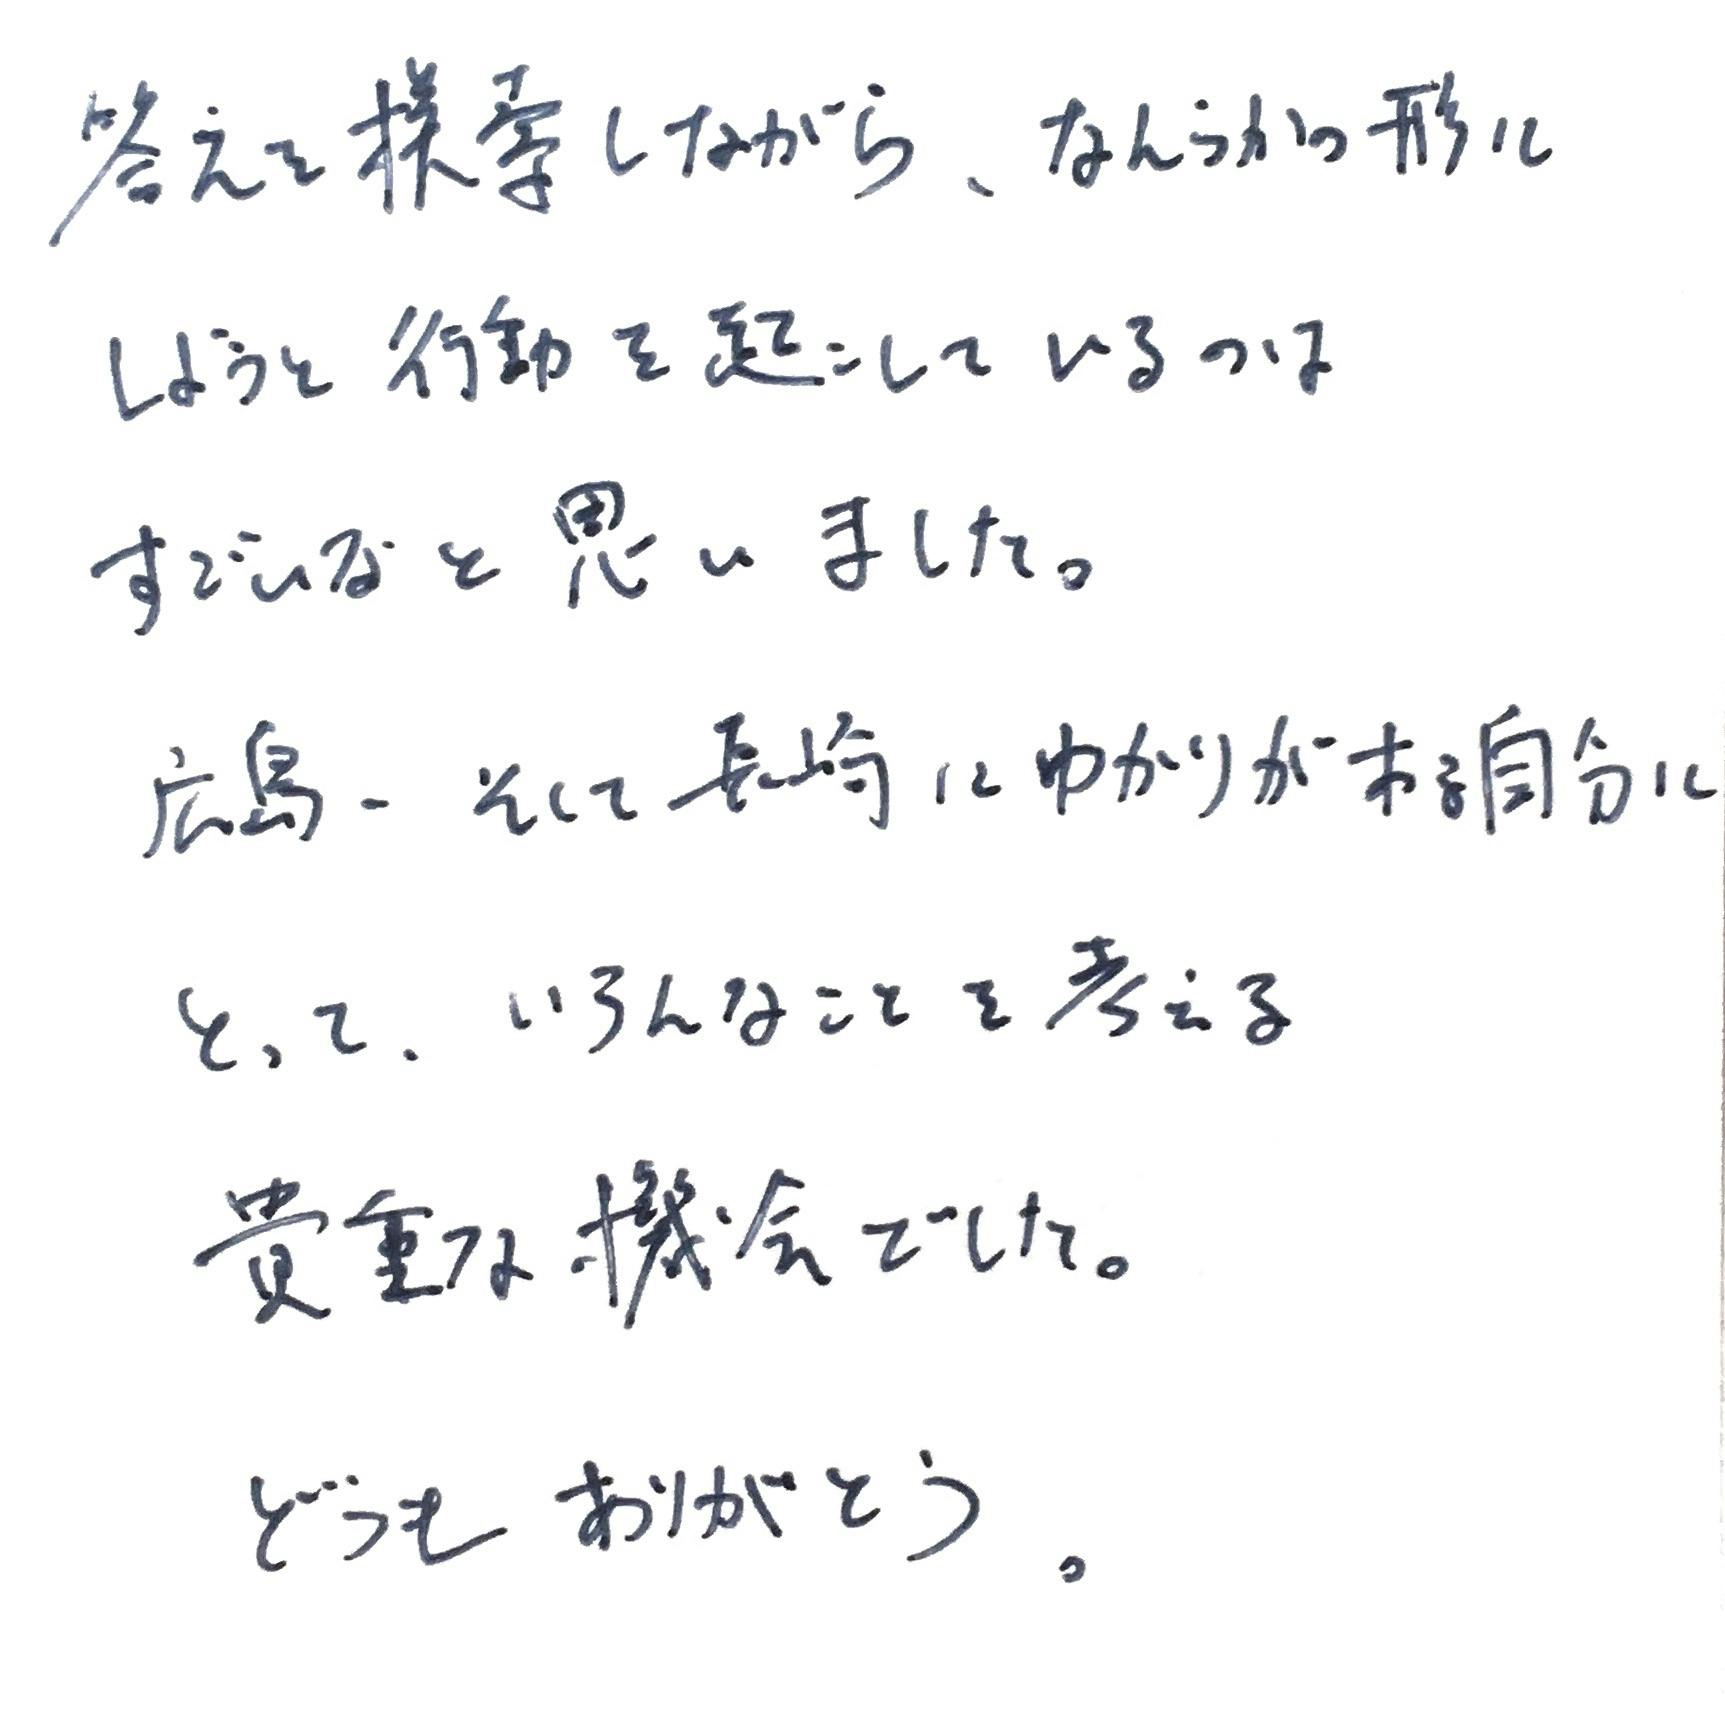 答えを模索しながら、なんらかの形に
しようと行動を起こしているのは
すごいなと思いました。
広島、そして長崎にゆかりがある自分に
とって、いろんなことを考える
貴重な機会でした。
どうもありがとう。